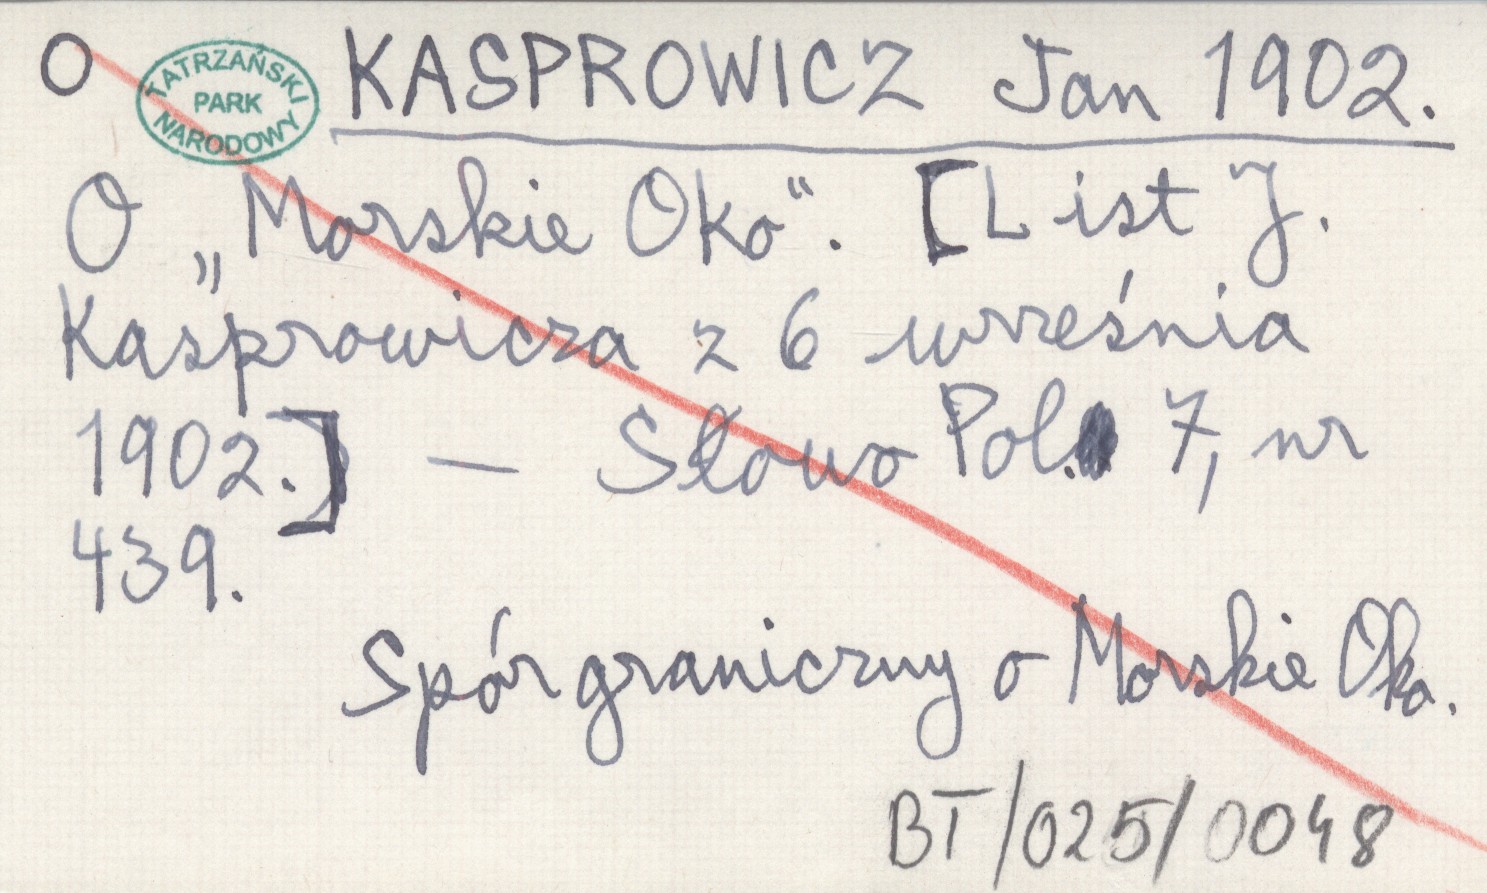 O TATRZAŃSKI PARK NARODOWY KASPROWICZ Jan 1902.
O „Morskie Oko“. [List J.
Kasprowicza z 6 września
1902.] — Słowo Pol. 7, nr
439.
Spór graniczny o Morskie Oko.
BT/025/0048